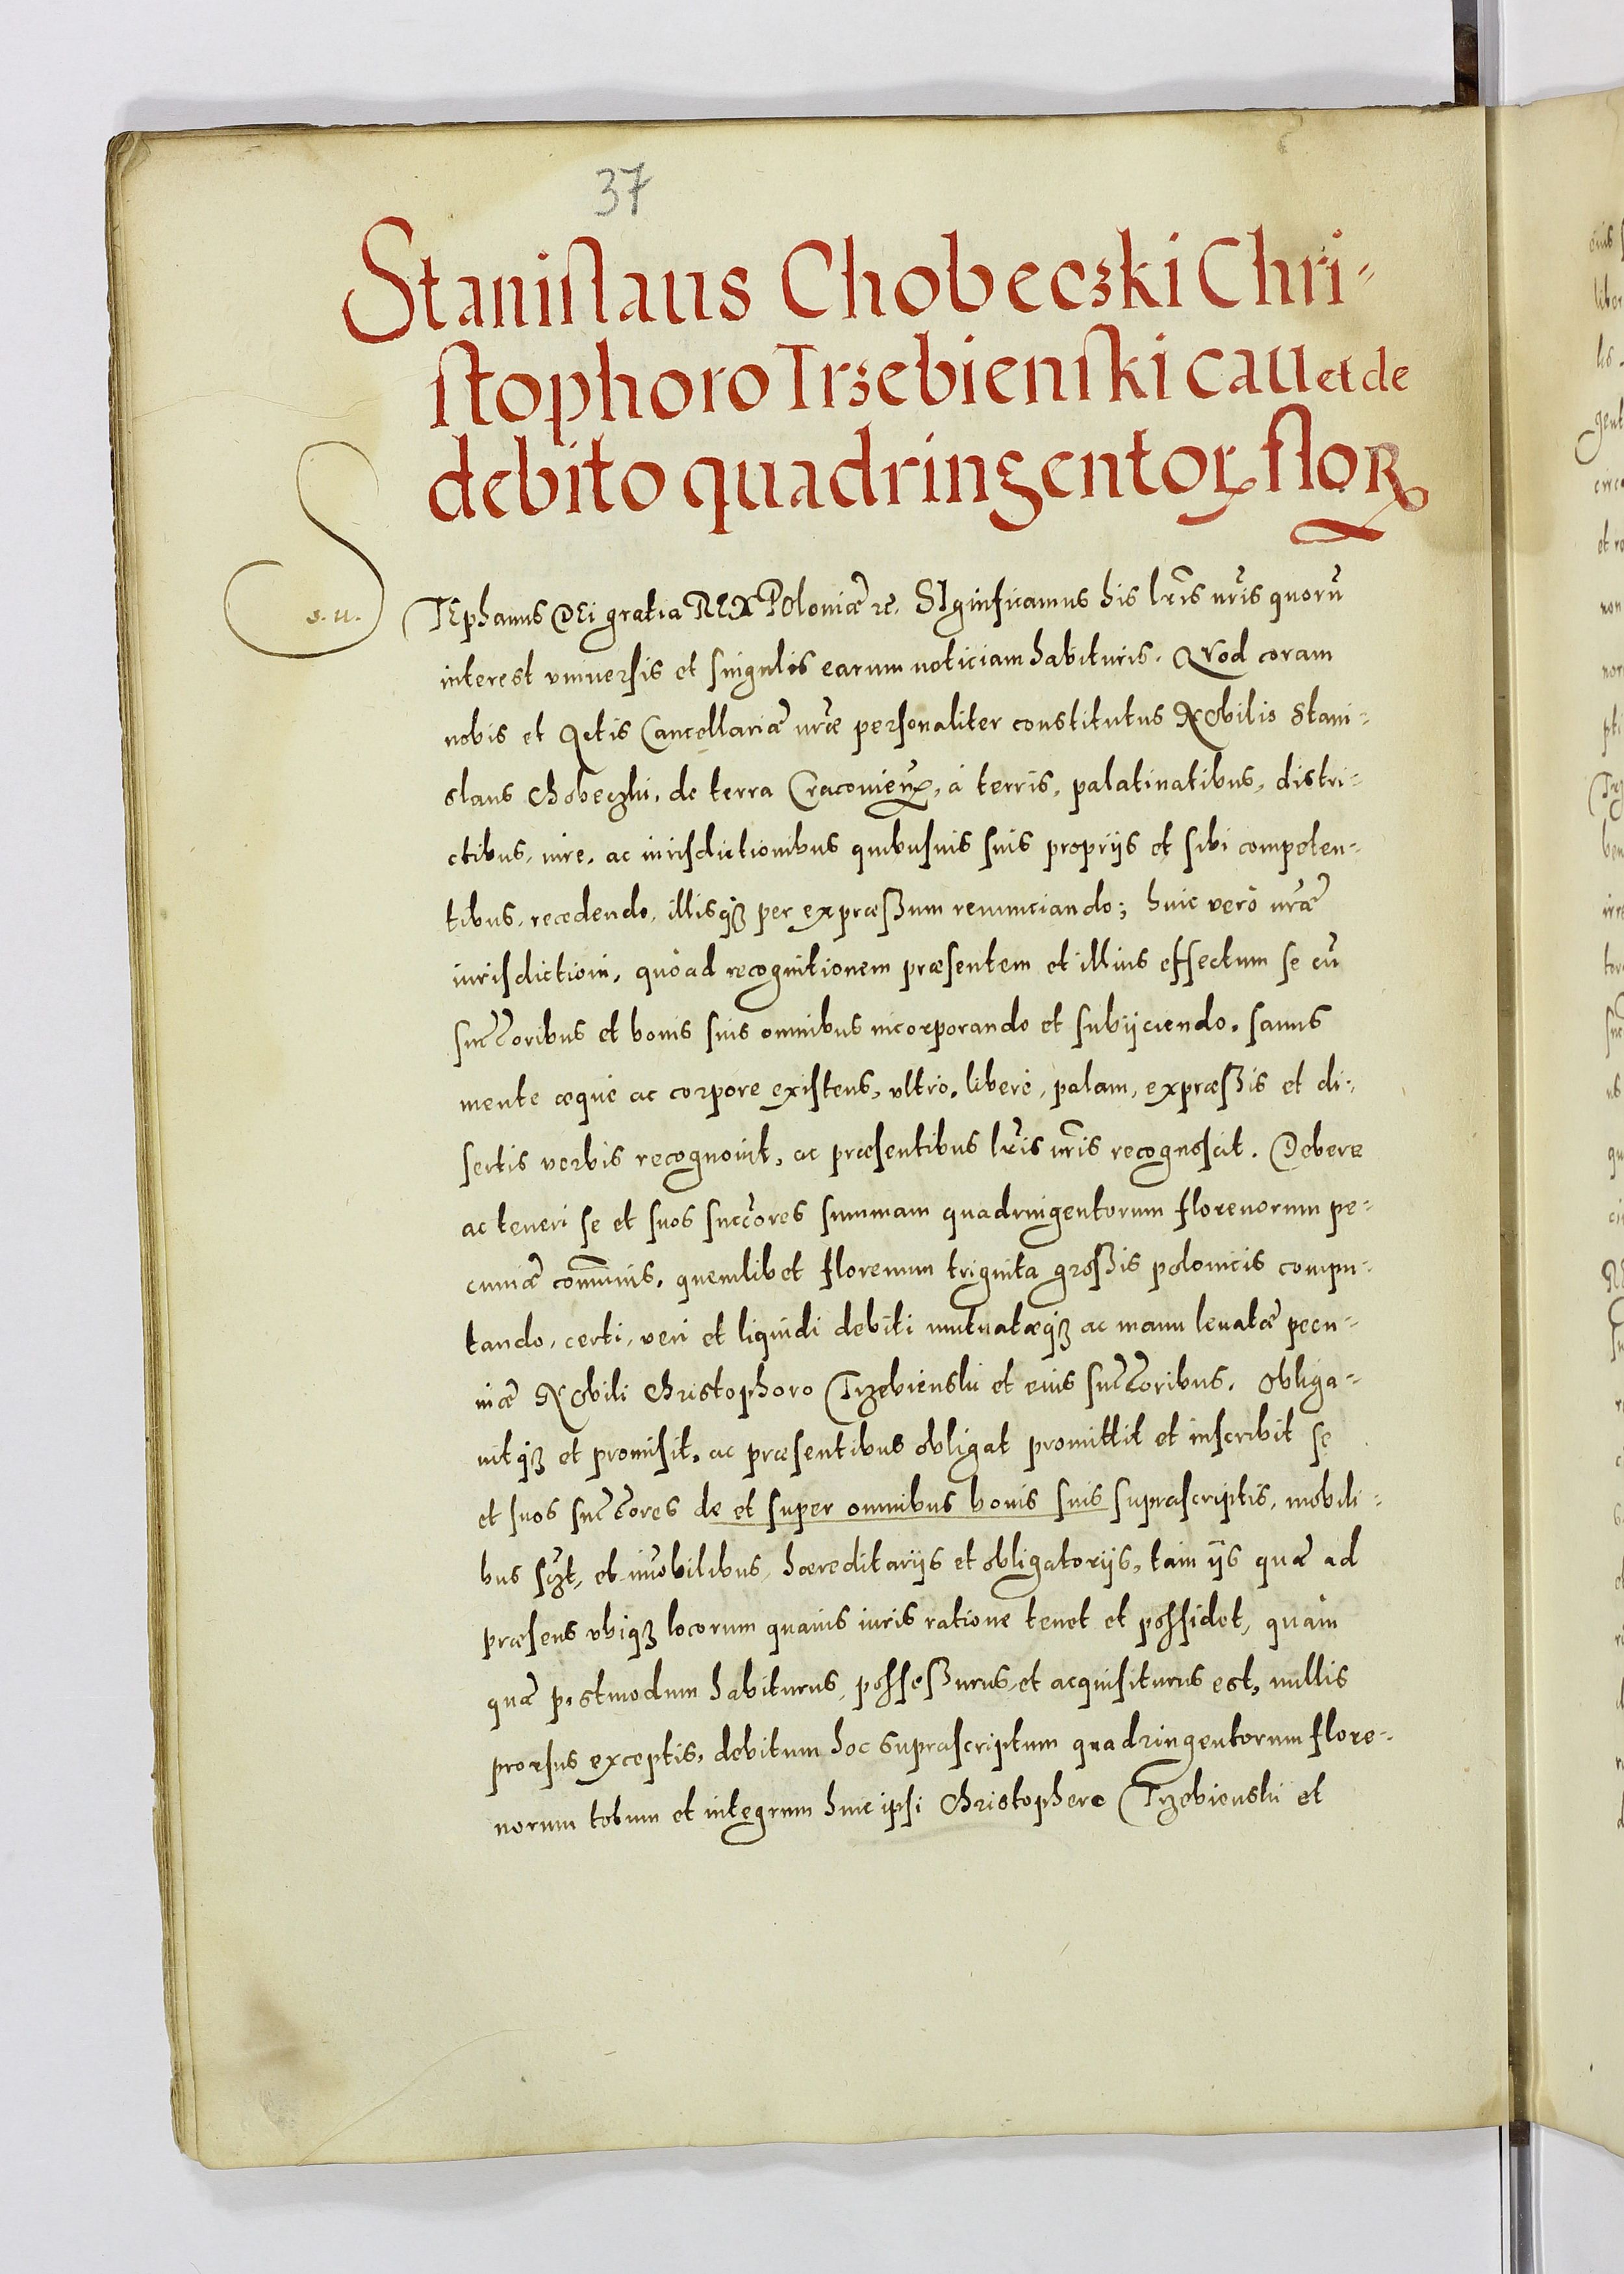 37
Stanislaus Chobeczki Chri-
stophoro Trzebienski cauet de
debito quadringentoꝝ floꝝ
S
s. u.
TEphanus DEi gratia REX POloniæ ꝛc. SIgnificamus his lr̃is nr̃is quorũ
interest vniuersis et singulis earum noticiam habituris. QVod coram
nobis et Actis Cancellariæ nr̃æ personaliter constitutus NObilis Stani-
slaus Chobeczki, de terra Cracouieñ, à terris, palatinatibus, distri-
ctibus, iure, ac iurisdictionibus quibusuis suis proprijs et sibi competen-
tibus, recedendo, illisqꝫ per expræßum renunciando; huic verò nr̃æ
iurisdictioni, quò ad recognitionem præsentem et illius effectum se cũ
succ̃oribus et bonis suis omnibus incorporando et subijciendo. sanus
mente æque ac corpore existens, vltro, liberè, palam, expræßis et di-
sertis verbis recognouit, ac præsentibus lr̃is nr̃is recognoscit. Debere
ac teneri se et suos succ̃ores summam quadringentorum florenorum pe-
cuniæ com̃unis, quemlibet florenum triginta großis polonicis compu-
tando, certi, veri et liquidi debiti mutuatæqꝫ ac manu leuatæ pecu-
niæ NObili Christophoro Trzebienski et eius succ̃oribus. Obliga-
uitqꝫ et promisit, ac præsentibus obligat promittit et inscribit se
et suos succ̃ores de et super omnibus bonis suis suprascriptis, mobili-
bus scz̃t, et im̃obilibus, hæreditarijs et obligatorijs, tam ijs quæ ad
præsens vbiqꝫ locorum quauis iuris ratione tenet et possidet, quàm
quæ postmodum habiturus, posseßurus et acquisiturus est, nullis
prorsus exceptis, debitum hoc suprascriptum quadringentorum flore-
norum totum et integrum huic ipsi Christophero Trzebienski et